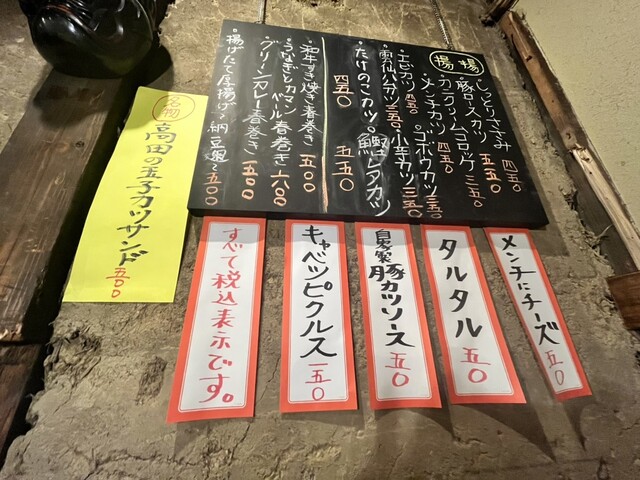 揚揚
・しっとりささみ 四五〇
・豚ロースカツ 五五〇
・カニクリームコロッケ 三五〇
・メンチカツ 四五〇
・ゴボウカツ 三五〇
・エビカツ 四五〇
・雲仙ハムカツ 三五〇
・小玉カツ 三五〇
・たけのこカツ 四五〇
・鰹レアカツ 五五〇
・和牛すき焼き春巻き 五〇〇
・うなぎとカマンベール春巻き 六八〇
・グリーンカレー春巻き 五〇〇
・揚げたて厚揚げ〜納豆〜 五〇〇
名物
高田の玉子カツサンド
五〇〇
メンチにチーズ 五〇
タルタル 五〇
自家製
豚カツソース 五〇
キャベツピクルス 一五〇
すべて税込表示です。